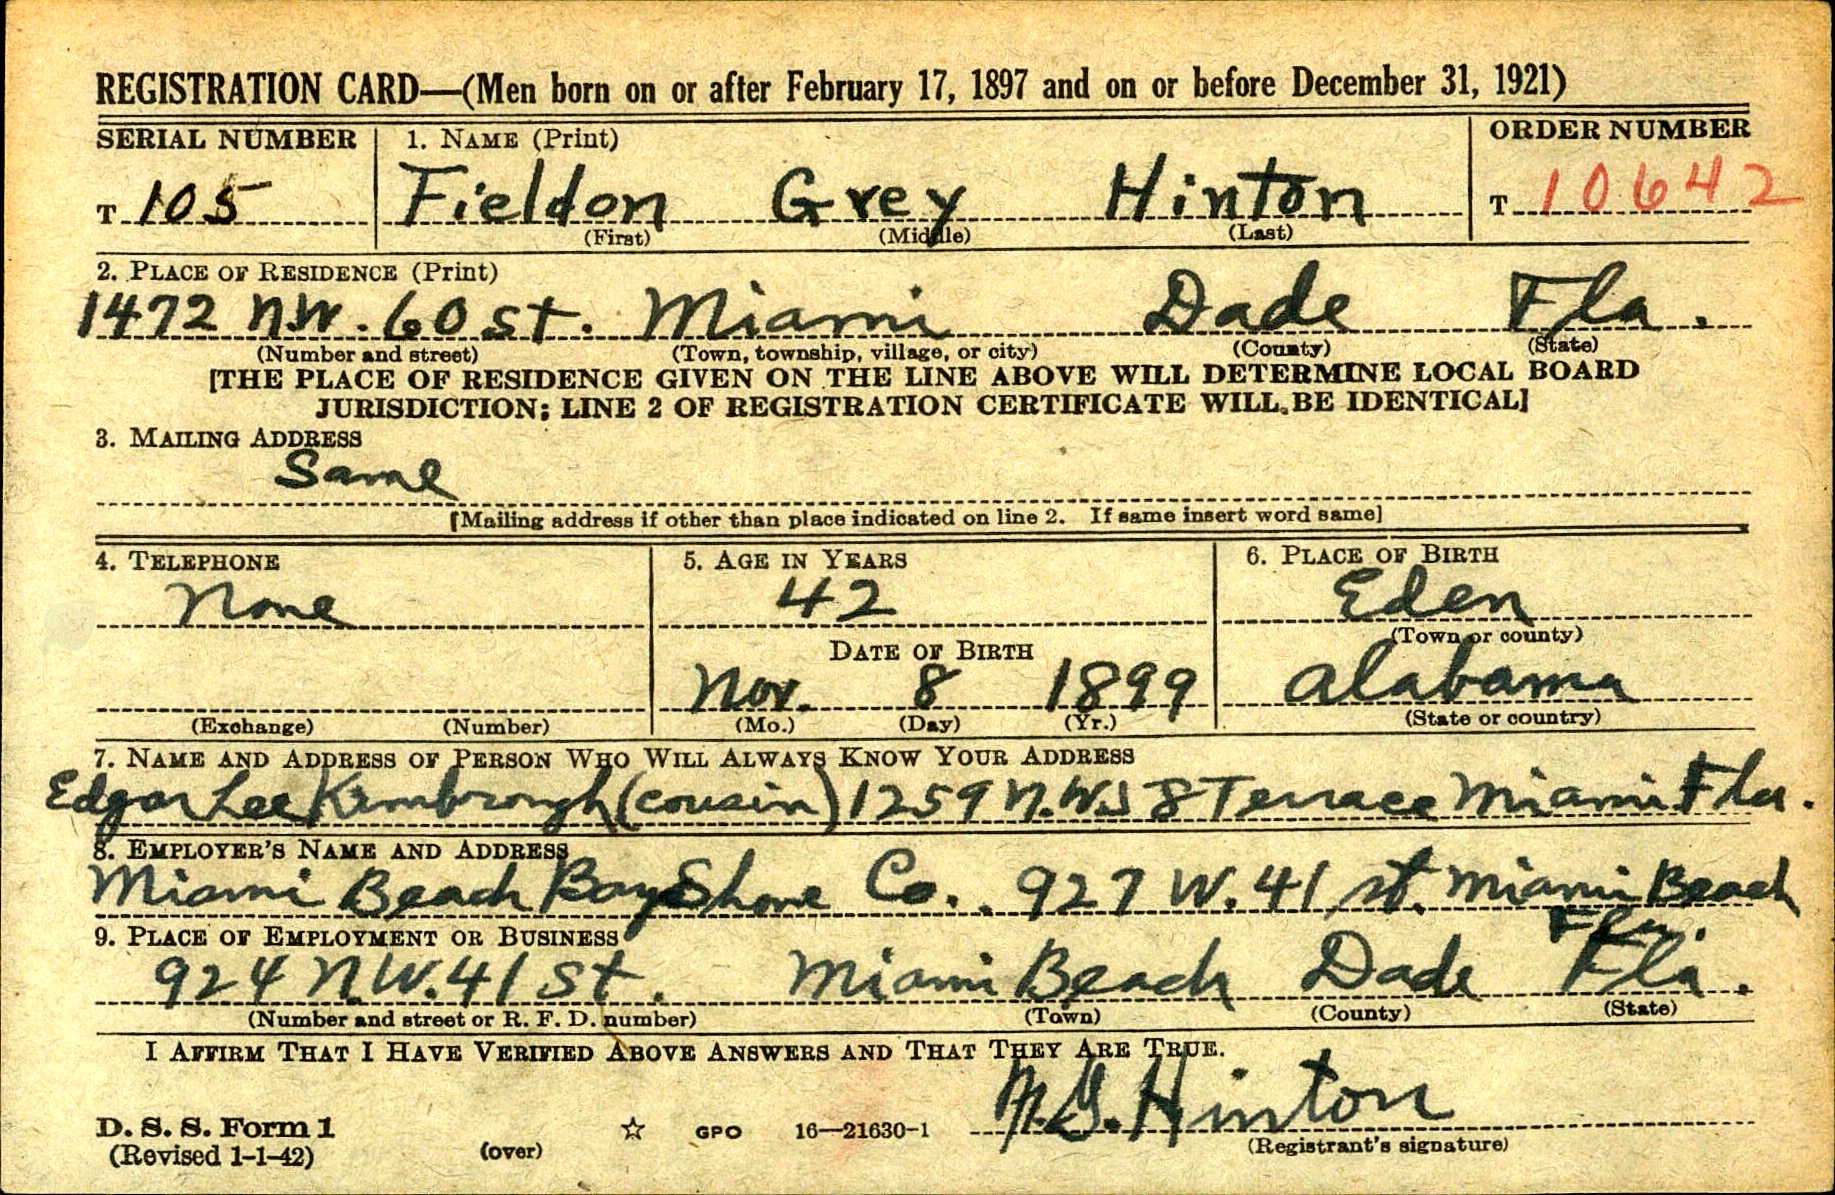 REGISTRATION CARD—(Men born on or after February 17, 1897 and on or before December 31, 1921)
SERIAL NUMBER 1. NAME (Print) ORDER NUMBER
T 105 Fieldon Grey Hinton T 10642
(First) (Middle) (Last)
2. PLACE OF RESIDENCE (Print)
1472 N.W. 60 St. Miami Dade Fla.
(Number and street) (Town, township, village, or city) (County) (State)
[THE PLACE OF RESIDENCE GIVEN ON THE LINE ABOVE WILL DETERMINE LOCAL BOARD
JURISDICTION; LINE 2 OF REGISTRATION CERTIFICATE WILL BE IDENTICAL]
3. MAILING ADDRESS
Same
[Mailing address if other than place indicated on line 2. If same insert word same]
4. TELEPHONE 5. AGE IN YEARS 6. PLACE OF BIRTH
None 42 Eden
(Town or county)
DATE OF BIRTH
Nov. 8 1899 Alabama
(Exchange) (Number) (Mo.) (Day) (Yr.) (State or country)
7. NAME AND ADDRESS OF PERSON WHO WILL ALWAYS KNOW YOUR ADDRESS
Edgar Lee Kimbrough (cousin) 1259 N.W. Terrace Miami Fla.
8. EMPLOYER'S NAME AND ADDRESS
Miami Beach Bay Shore Co. 927 W. 41 st. Miami Beach
Fla.
9. PLACE OF EMPLOYMENT OR BUSINESS
924 N.W. 41 St. Miami Beach Dade Fla.
(Number and street or R. F. D. number) (Town) (County) (State)
I AFFIRM THAT I HAVE VERIFIED ABOVE ANSWERS AND THAT THEY ARE TRUE.
G. Hinton
D. S. S. Form 1
(Revised 1-1-42) (over) ☆ GPO 16—21630-1 (Registrant's signature)